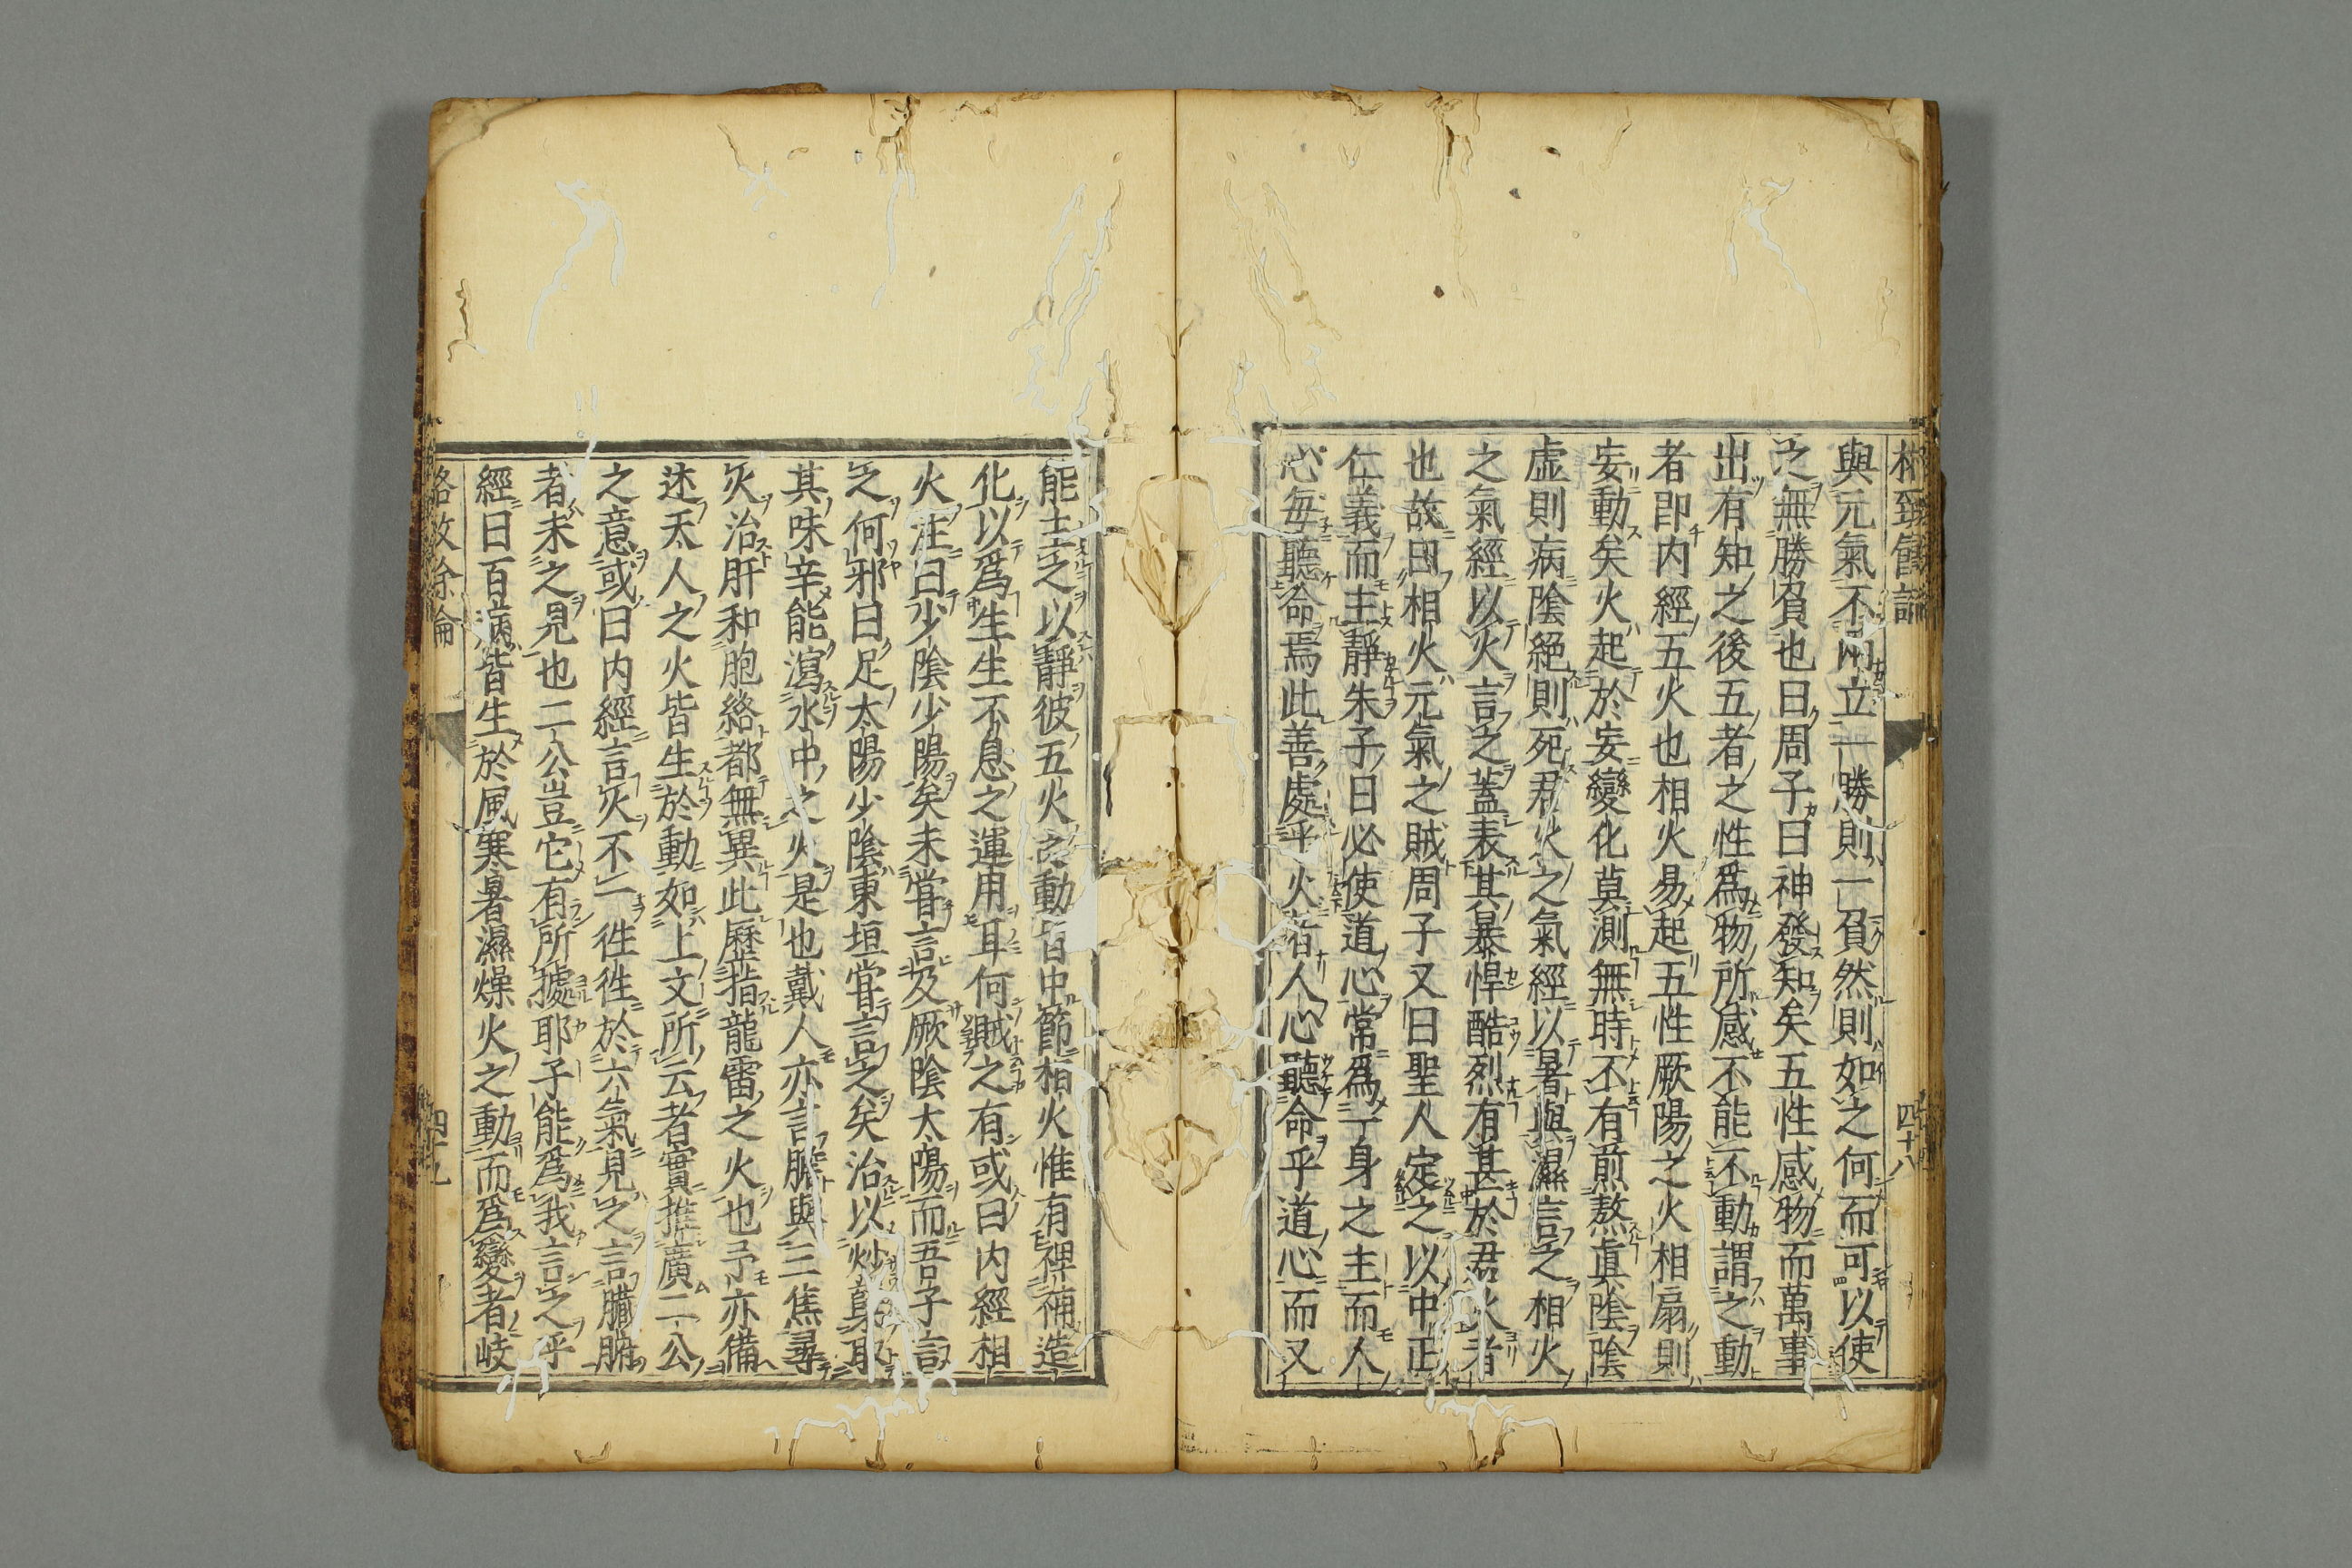 格致餘論
四十八
與元氣不兩立一勝則一負然則如之何而可以使
之無勝負也曰周子曰神發知矣五性感物而萬事
出有知之後五者之性爲物所感不能不動謂之動
者即内經五火也相火易起五性厥陽之火相扇則
妄動矣火起於妄變化莫測無時不有煎熬真陰陰
虛則病陰絕則死君火之氣經以暑與濕言之相火
之氣經以火言之蓋表其暴悍酷烈有甚於君火者
也故曰相火元氣之賊周子又曰聖人定之以中正
仁義而主靜朱子曰必使道心常爲一身之主而人
心每聽命焉此善處乎火者人心聽命乎道心而又
能主之以靜彼五火之動皆中節相火惟有裨補造
化以爲生生不息之運用耳何賊之有或曰内經相
火注曰少陰少陽矣未嘗言及厥陰太陽而吾子言
之何邪曰足太陽少陰東垣嘗言之矣治以炒蘗取
其味辛能瀉水中之火是也戴人亦言膽與三焦尋
火治肝和胞絡都無異此歷指龍雷之火也予亦備
述天人之火皆生於動如上文所云者實推廣二公
之意或曰内經言火不一徃徃於六氣見之言臟腑
者未之見也二公豈它有所據耶子能爲我言之乎
經曰百病皆生於風寒暑濕燥火之動而爲變者岐
格致余侖
四十九